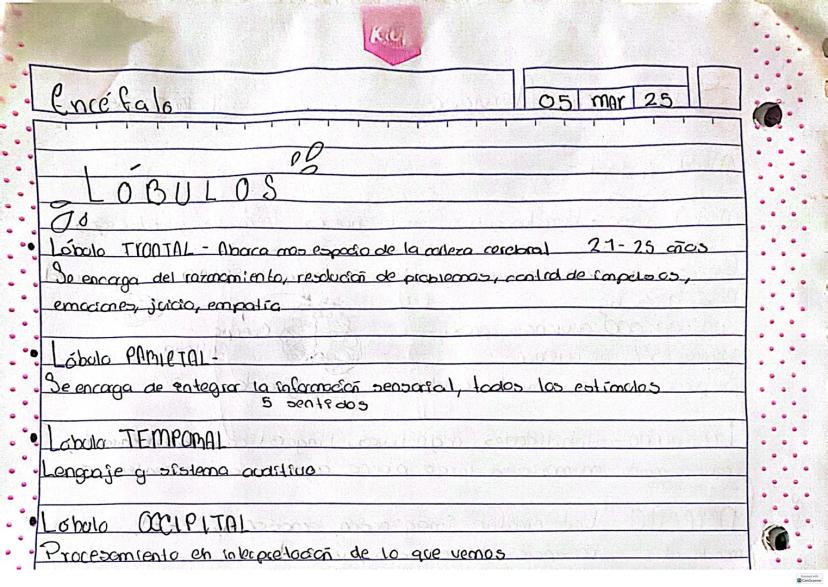 Kiut
Encéfalo
05 mar 25
LÓBULOS
Lóbulo FRONTAL - Abarca mas espacio de la corteza cerebral 21-25 años
Se encarga del razonamiento, resolución de problemas, control de impulsos,
emociones, juicio, empatía
Lóbulo PARIETAL-
Se encarga de integrar la información sensorial, todos los estímulos
5 sentidos
Lóbulo TEMPORAL
Lenguaje y sistema auditivo
Lóbulo OCCIPITAL
Procesamiento en interpretación de lo que vemos
CamScanner